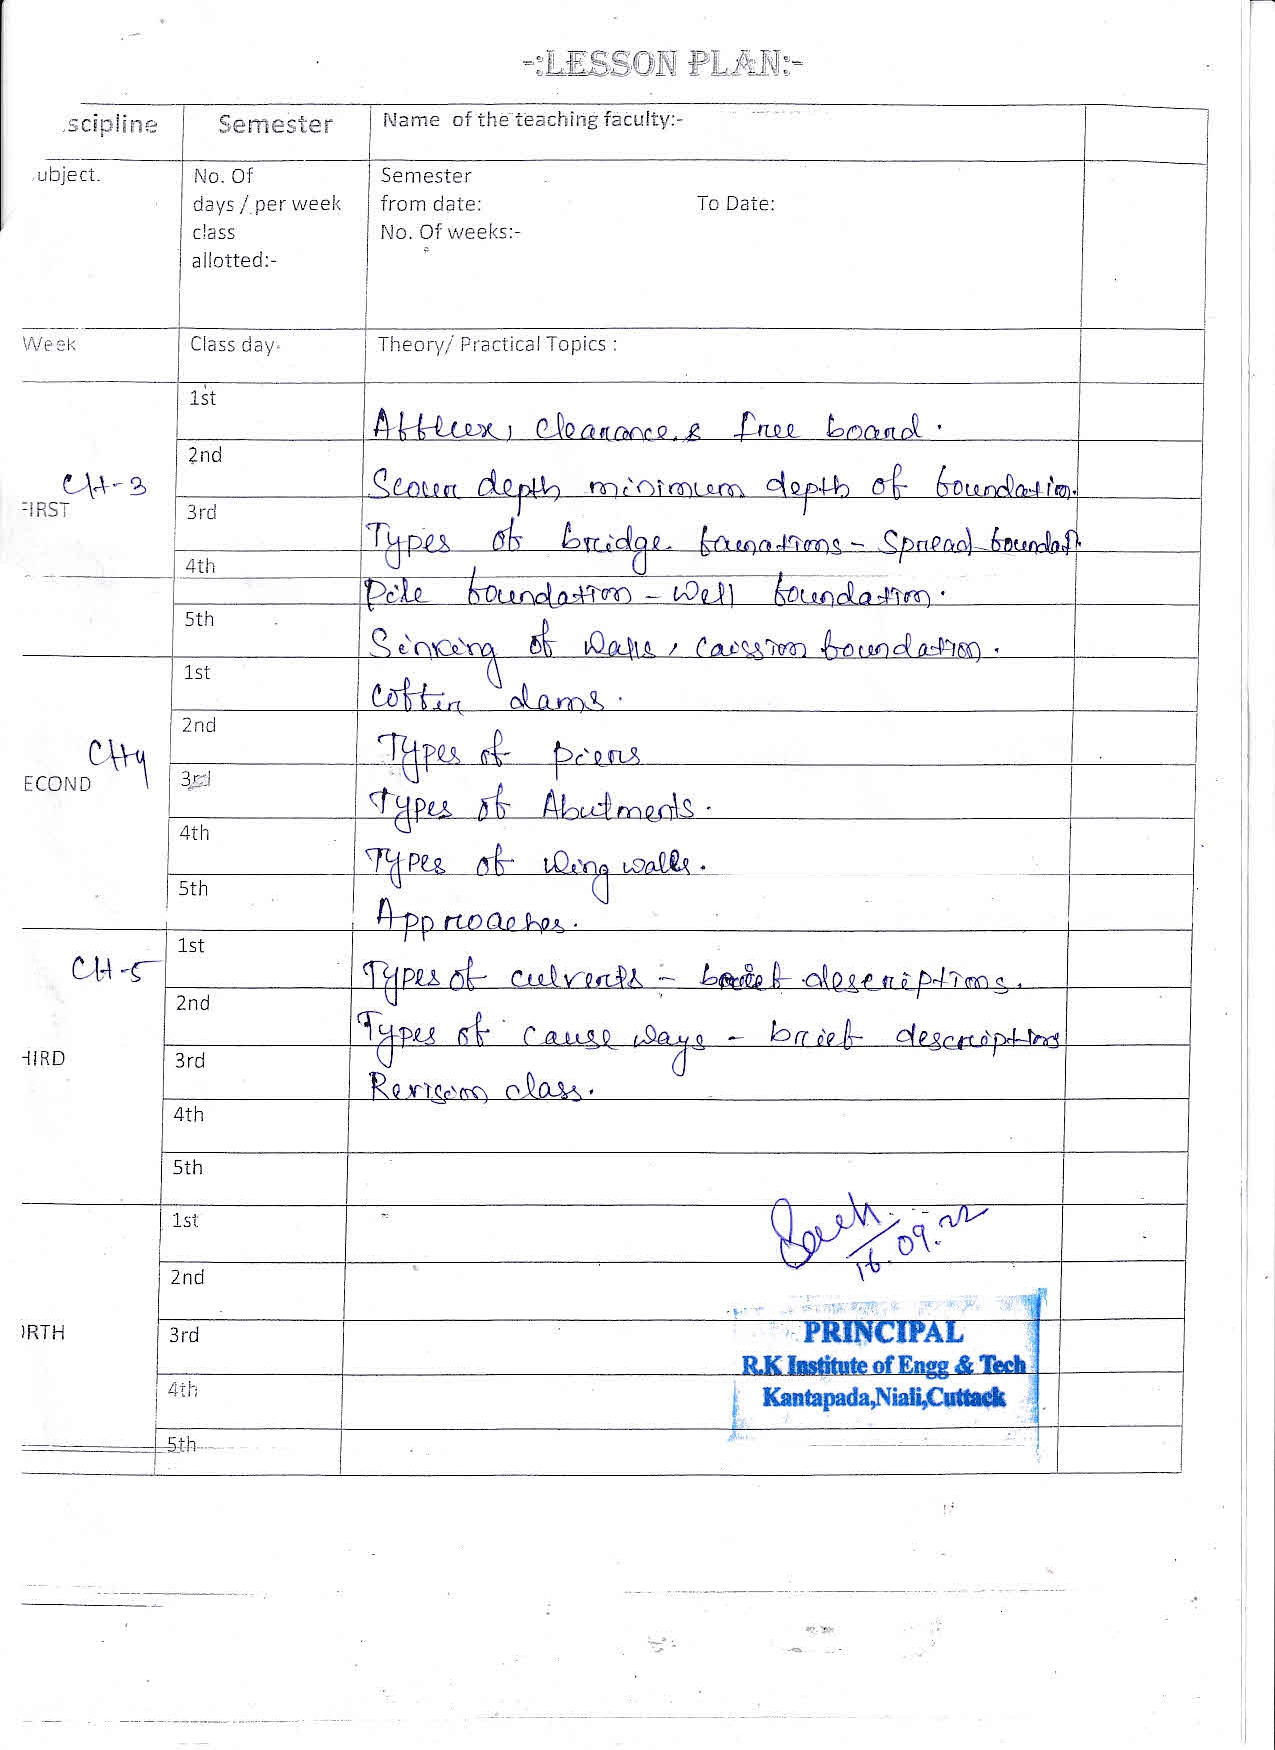 -:LESSON PLAN:-
scipline Semester Name of the teaching faculty:-
ubject. No. Of Semester
days / per week from date: To Date:
class No. Of weeks:-
allotted:-
Week Class day- Theory/ Practical Topics :
1st
Afflux, clearance & free board.
2nd
CH-3 Scour depth minimum depth of foundation.
FIRST 3rd
Types of bridge founations - Spread foundat
4th
Pile foundation - Well foundation.
5th
Sinking of wells, caission foundation.
1st
Coffer dams.
2nd
CH4 Types of piers
ECOND 3rd
Types of Abutments.
4th
Types of wing walls.
5th
Approaches.
1st
CH-5 Types of culverts - brief descriptions.
2nd
Types of cause ways - brief descriptions
HIRD 3rd
Revision class.
4th
5th
1st
16.09.22
2nd
ORTH 3rd PRINCIPAL
R.K Institute of Engg & Tech
4th Kantapada,Niali,Cuttack
5th